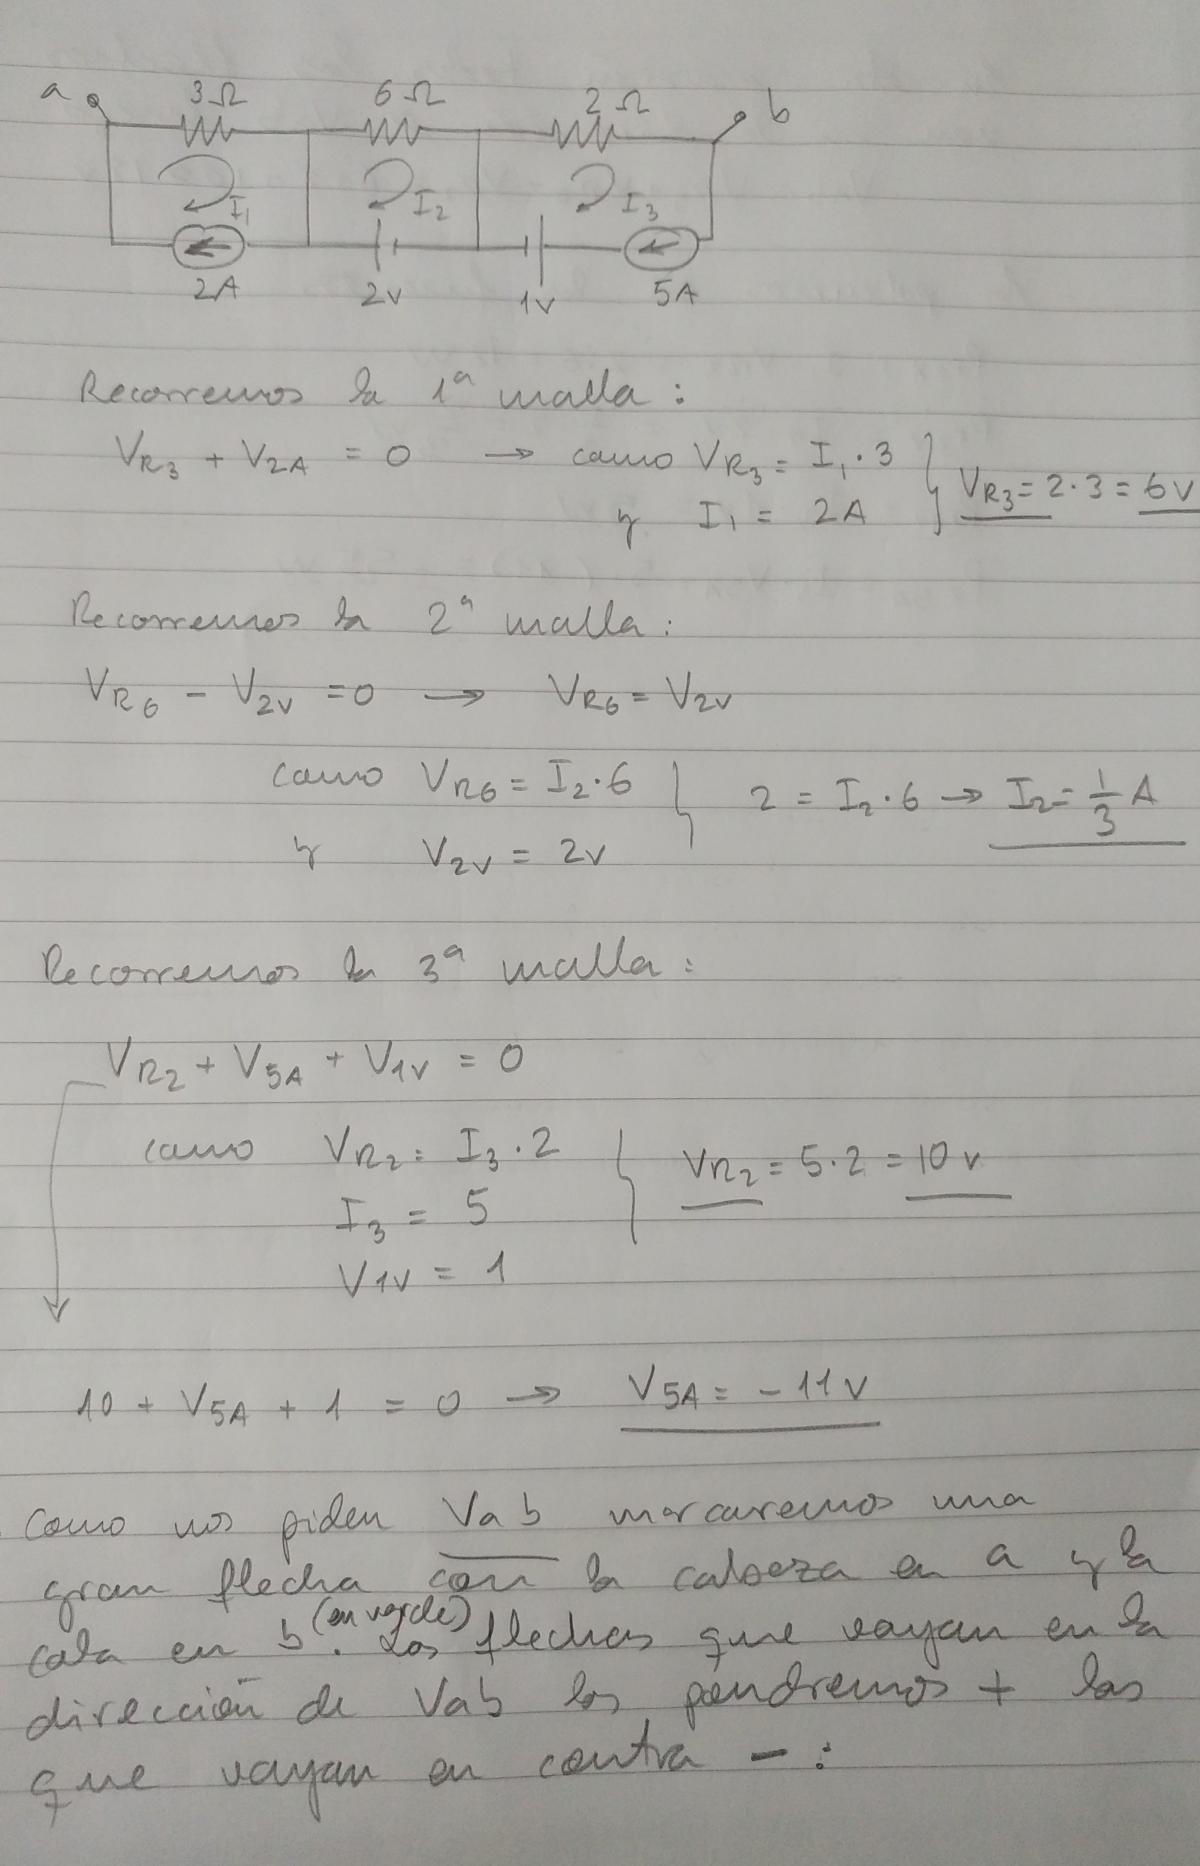 a 3Ω 6Ω 2Ω b
I₁ I₂ I₃
2A 2v 1v 5A
Recorremos la 1ª malla:
VR₃ + V2A = 0 → como VR₃ = I₁·3 } VR₃ = 2·3 = 6v
y I₁ = 2A
Recorremos la 2ª malla:
VR₆ - V2v = 0 → VR₆ = V2v
como VR₆ = I₂·6 } 2 = I₂·6 → I₂ = 1/3 A
y V2v = 2v
Recorremos la 3ª malla:
VR₂ + V5A + V1v = 0
como VR₂ = I₃·2 } VR₂ = 5·2 = 10v
I₃ = 5
V1v = 1
10 + V5A + 1 = 0 → V5A = -11v
Como nos piden Vab marcaremos una
gran flecha con la cabeza en a y la
cola en b (en verde). Las flechas que vayan en la
dirección de Vab las pondremos + las
que vayan en contra - :